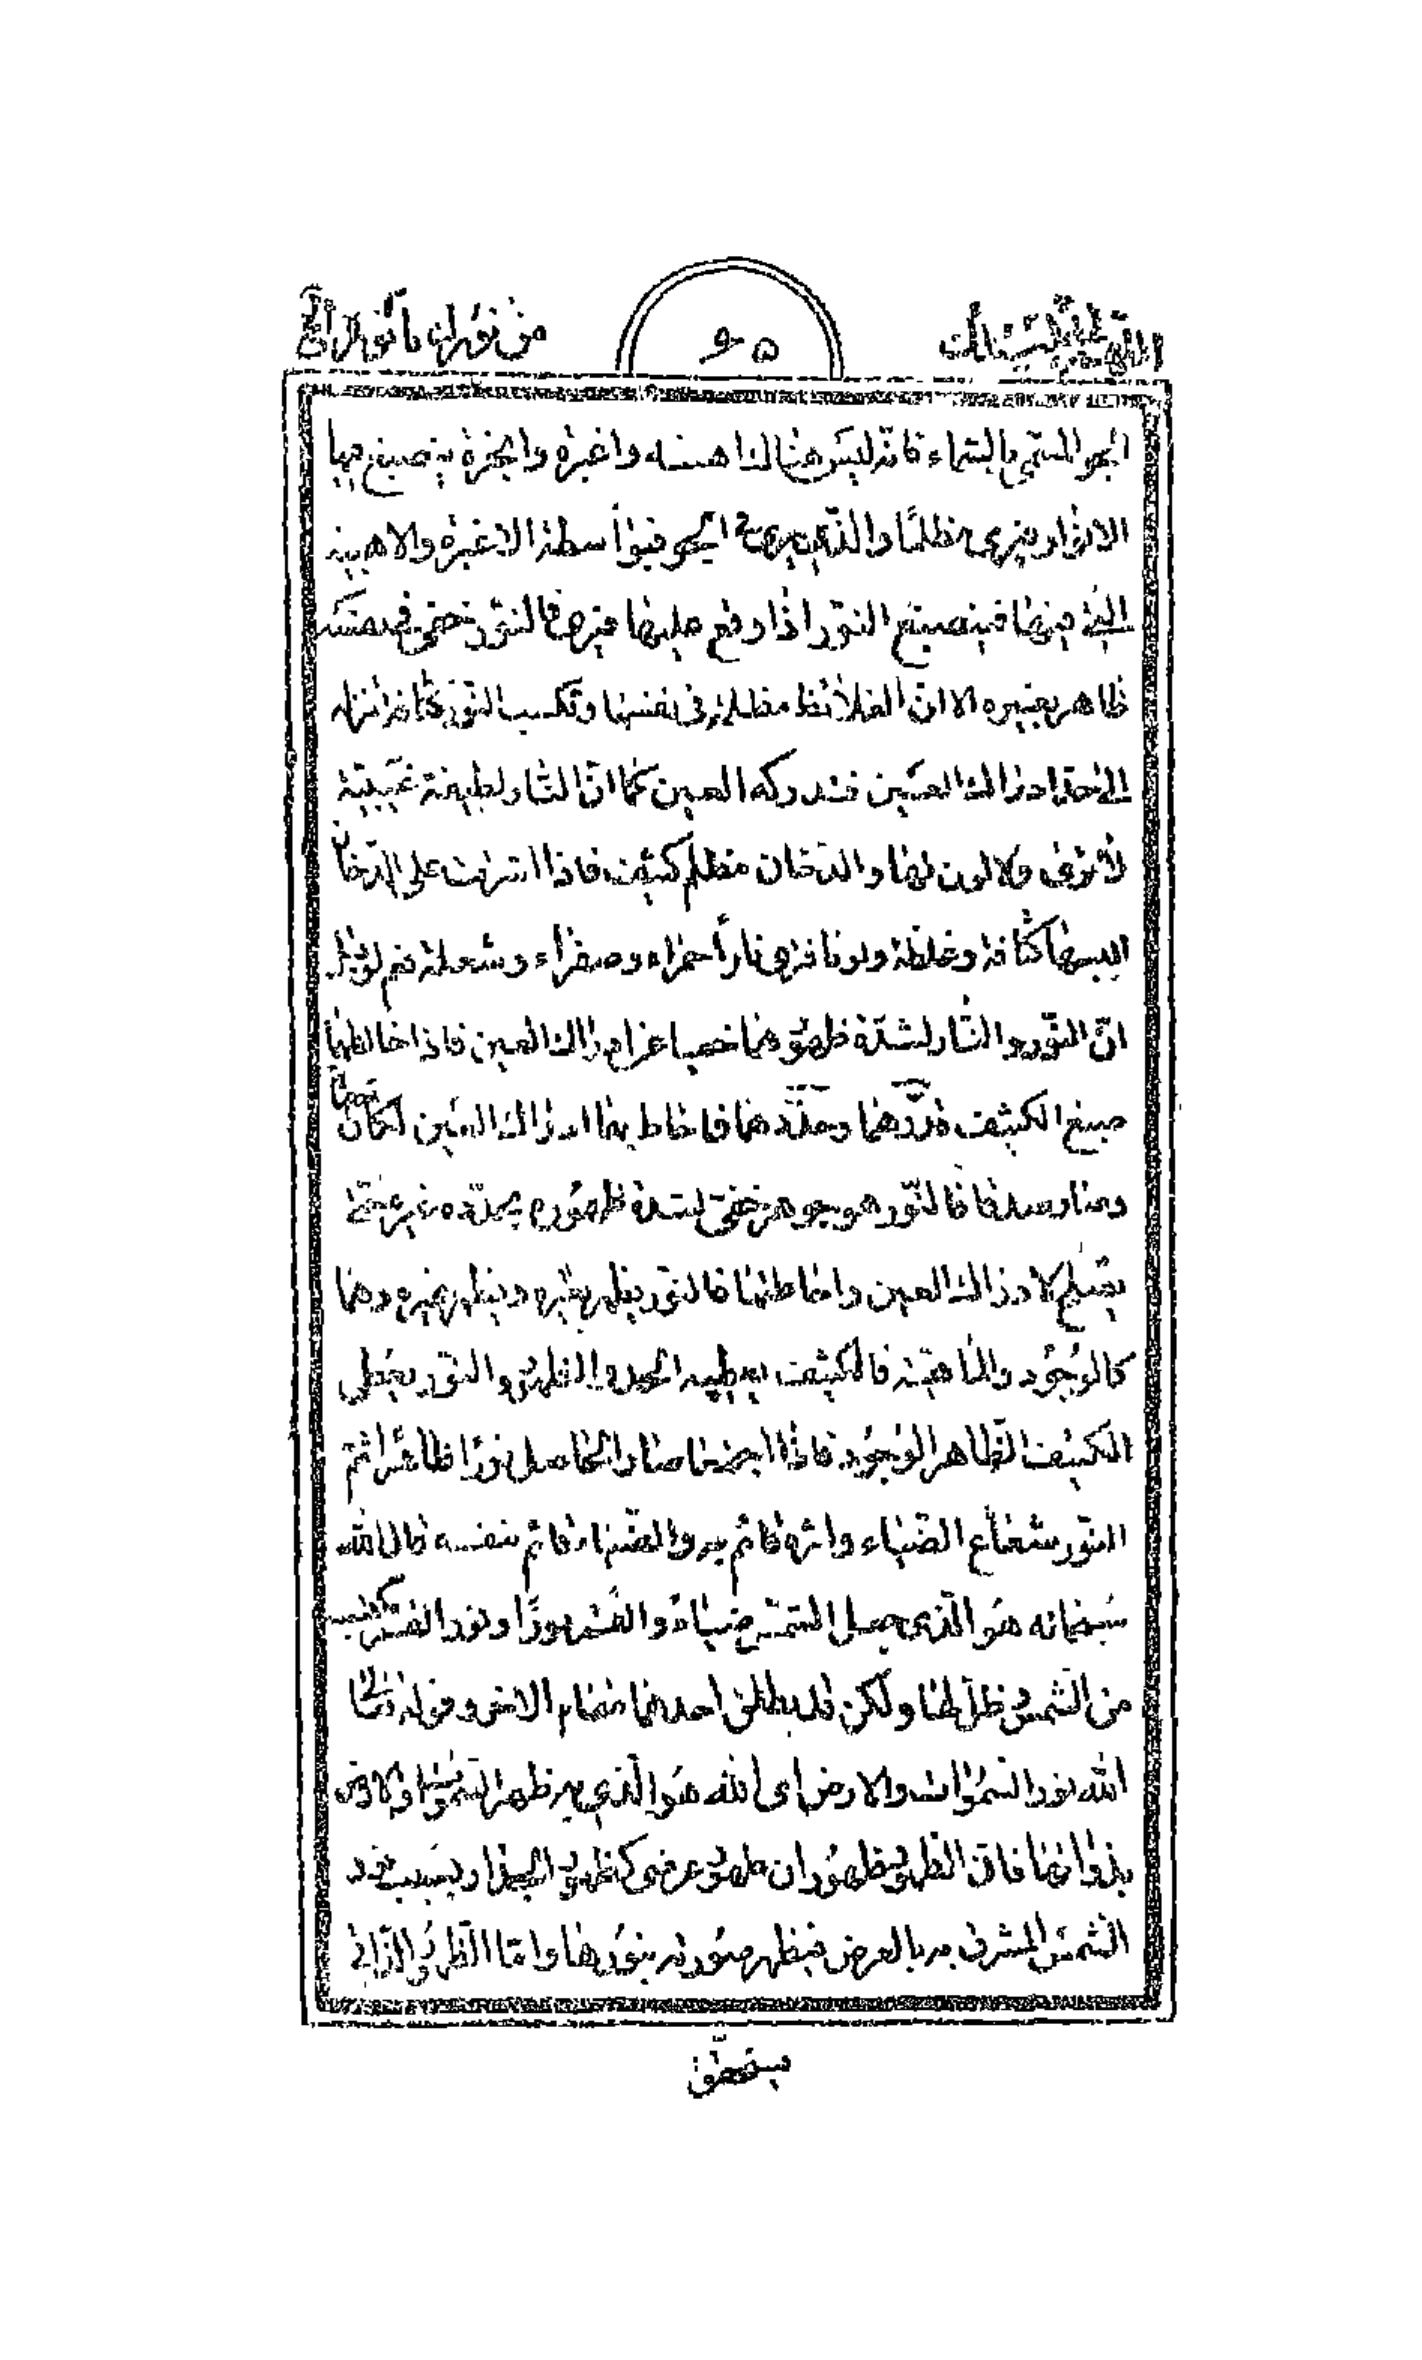 من نور انها ما نور
٥٩
الجو المسمى بالسماء فانه ليس هنالك اهبية واغبرة وابخرة ينصبغ فيها
الانوار فيرى مظلما والذي يرى في الجو فبواسطة الاغبرة والاهبية
التي فيها فينصبغ النور اذا وقع عليها فيرى فالنور خفي في نفسه
ظاهر بغيره الا ان الغلائظ مظلمة في نفسها وتكسب النور كثافة انزله
الى حد ادراك العين فتدركه العين كما ان النار لطيفة غيبية
لا ترى ولا لون لها والدخان مظلم كثيف فاذا اشرقت على الدخان
البسها كثافة وغلظة ولونا فترى نارا حمراء وصفراء وشعلة فهم لو
ان النور والنار لشدة ظهورهما خفيا عن ادراك العين فاذا خالطهما
صبغ الكثيف قدرهما وحددهما فاحاط بهما ادراك العين لكان
فالنور هو جوهر خفي لشدة ظهوره يحدده غيره حتى
يصلح لادراك العين واحاطتها فالنور يظهر بغيره ويظهر غيره وهما
كالوجود والماهية فالكثيف يعطيه الحدود الظهور والنور يعطي
الكثيف الظاهر الوجود فاذا اجتمعا صار الحاصل نورا ظاهرا ثم
النور شعاع الضياء واثره قائم به والضياء قائم بنفسه قال الله
سبحانه هو الذي جعل الشمس ضياء والقمر نورا ونور القمر مكتسب
من الشمس وظل لها ولكن قد يطلق احدهما مقام الاخر وقوله تعالى
الله نور السموات والارض اى الله هو الذي به ظهر السموات والارض
بذواتها فان الظهور ظهوران ظهور عرضي كظهور الجدار بسبب نور
الشمس المشرق به بالعرض فيظهر صورته بنورها واما الظهور الذاتي